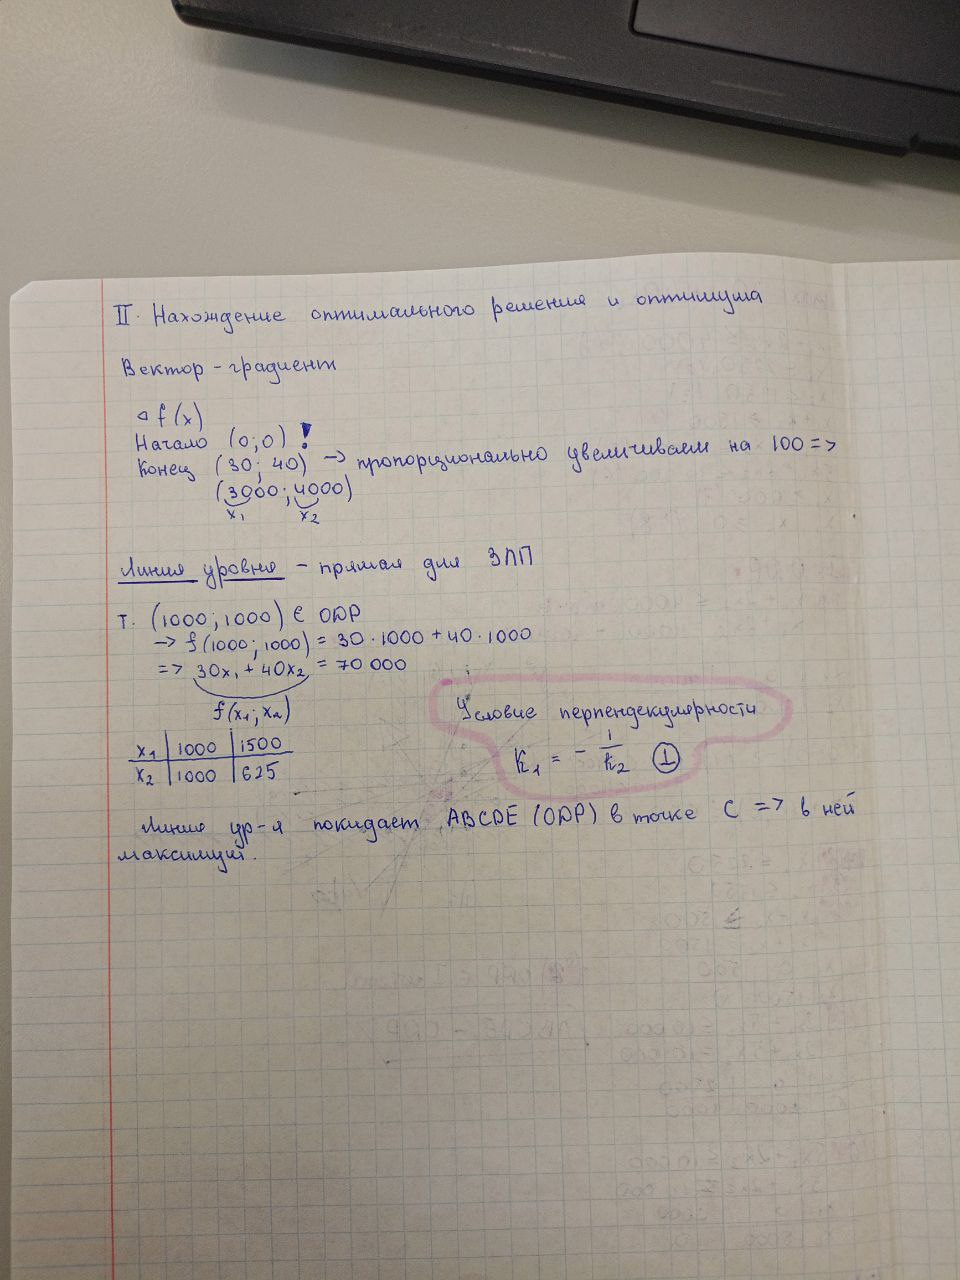 II. Нахождение оптимального решения и оптимума
Вектор - градиент
∇ f(x)
Начало (0;0) !
Конец (30; 40) → пропорционально увеличиваем на 100 =>
(3000; 4000)
x₁ x₂
Линия уровня - прямая для ЗЛП
т. (1000; 1000) ∈ ОДР
→ f(1000; 1000) = 30·1000 + 40·1000
=> 30x₁ + 40x₂ = 70 000
f(x₁; x₂)
Условие перпендекулярности
K₁ = - 1/k₂ ⊥
x₁ | 1000 | 1500
x₂ | 1000 | 625
Линия ур-я покидает ABCDE (ОДР) в точке C => в ней
максимум.